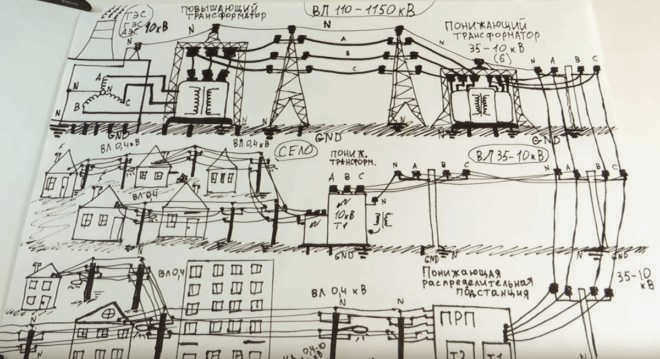 ТЭС
ГЭС
АЭС
10кВ
ПОВЫШАЮЩИЙ
ТРАНСФОРМАТОР
ВЛ 110-1150 кВ
ПОНИЖАЮЩИЙ
ТРАНСФОРМАТОР
35-10 кВ
(6)
N
N
N
A
B
C
N
A
B
C
N
A
B
C
N
GND
GND
GND
GND
ВЛ 0,4 кВ
ВЛ 0,4кВ
СЕЛО
ПОНИЖ.
ТРАНСФОРМ.
A B C
N A B C
ВЛ 35-10кВ
N A B C
ВЛ 0,4
N
10кВ
Т1
GND
GND
GND
ВЛ 0,4
ВЛ 0,4 кВ
N
N
Понижающая
распределительная
подстанция
35-10
кВ
ПРП
Т2
Т1
N